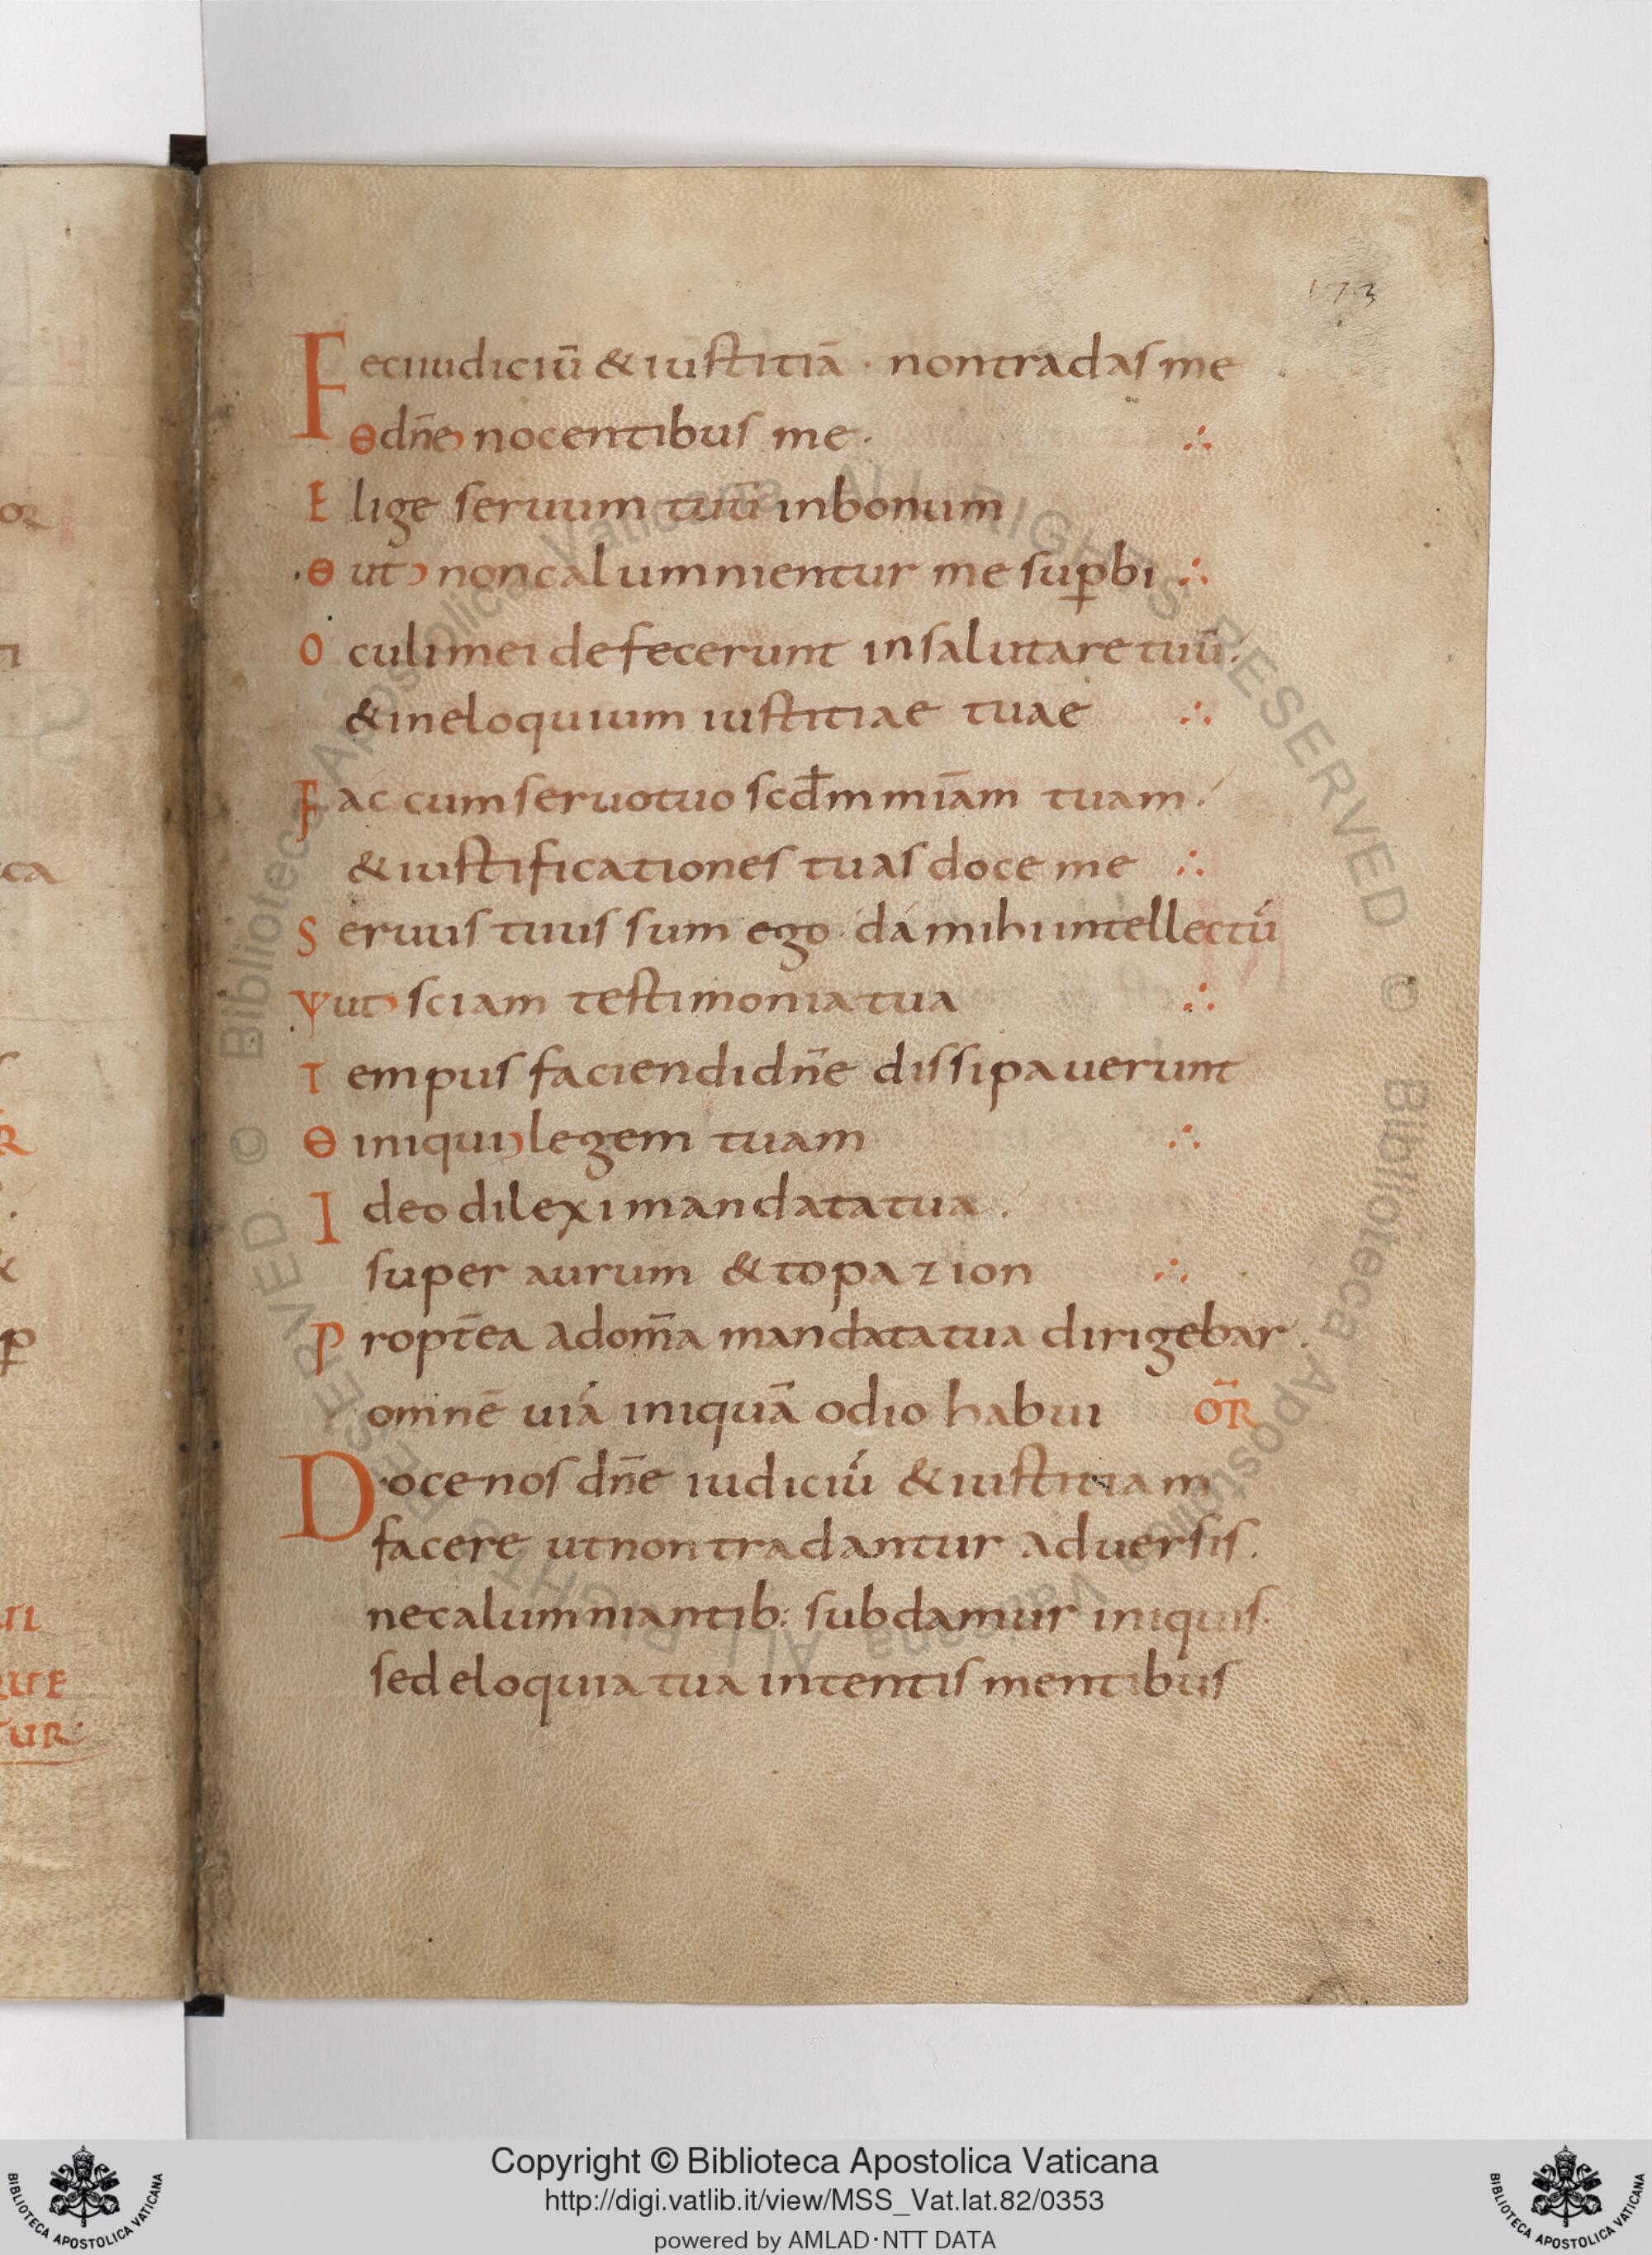 173
Feci iudiciū & iustitiā · non tradas me
ɵ dn̄e ͻ nocentibus me ·
Elige seruum tuū in bonum
· ɵ ut ͻ non calumnientur me sup̱bi ∴
Oculi mei defecerunt in salutare tuū ·
& in eloquium iustitiae tuae ∴
Fac cum seruo tuo scđm mīam tuam ·
& iustificationes tuas doce me ∴
Seruus tuus sum ego · dá mihi intellectū
ψ ut ͻ sciam testimonia tua ∴
Tempus faciendi dn̄e dissipauerunt
ɵ iniqui ͻ legem tuam ∴
Ideo dilexi mandata tua ·
super aurum & topazion ∴
Propt̄ea ad om̄a mandata tua dirigebar ·
omnē uiā iniquā odio habui ōR
Doce nos dn̄e iudiciū & iustitiam
facere ut non tradantur aduersis ·
ne calumniantib: subdamur iniquis ·
sed eloquia tua intentis mentibus
or
ti
ca
R
p̱
ITE
TUR
Copyright © Biblioteca Apostolica Vaticana
http://digi.vatlib.it/view/MSS_Vat.lat.82/0353
powered by AMLAD·NTT DATA
BIBLIOTECA APOSTOLICA VATICANA
BIBLIOTECA APOSTOLICA VATICANA
© Biblioteca Apostolica Vaticana ALL RIGHTS RESERVED © Biblioteca Apostolica Vaticana ALL RIGHTS RESERVED